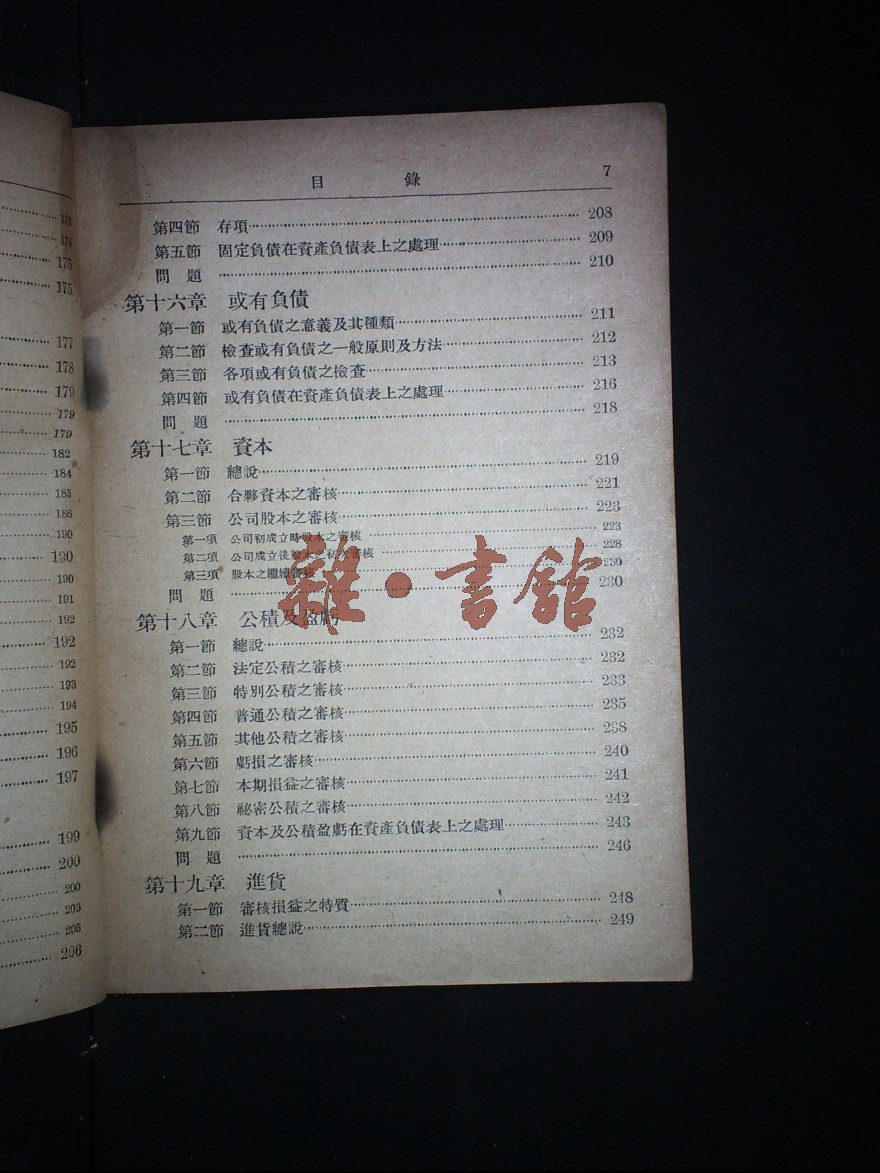 173
174
175
175
177
178
179
179
179
182
184
185
186
190
190
190
191
192
192
192
193
194
195
196
197
199
200
200
203
205
206
目 錄 7
第四節 存項 208
第五節 固定負債在資產負債表上之處理 209
問題 210
第十六章 或有負債
第一節 或有負債之意義及其種類 211
第二節 檢查或有負債之一般原則及方法 212
第三節 各項或有負債之檢查 213
第四節 或有負債在資產負債表上之處理 216
問題 218
第十七章 資本
第一節 總說 219
第二節 合夥資本之審核 221
第三節 公司股本之審核 223
第一項 公司初成立時股本之審核 223
第二項 公司成立後股本之初次審核 228
第三項 股本之繼續審核 230
問題 230
第十八章 公積及盈虧
第一節 總說 232
第二節 法定公積之審核 232
第三節 特別公積之審核 233
第四節 普通公積之審核 235
第五節 其他公積之審核 238
第六節 虧損之審核 240
第七節 本期損益之審核 241
第八節 祕密公積之審核 242
第九節 資本及公積盈虧在資產負債表上之處理 243
問題 246
第十九章 進貨
第一節 審核損益之特質 248
第二節 進貨總說 249
雜·書館